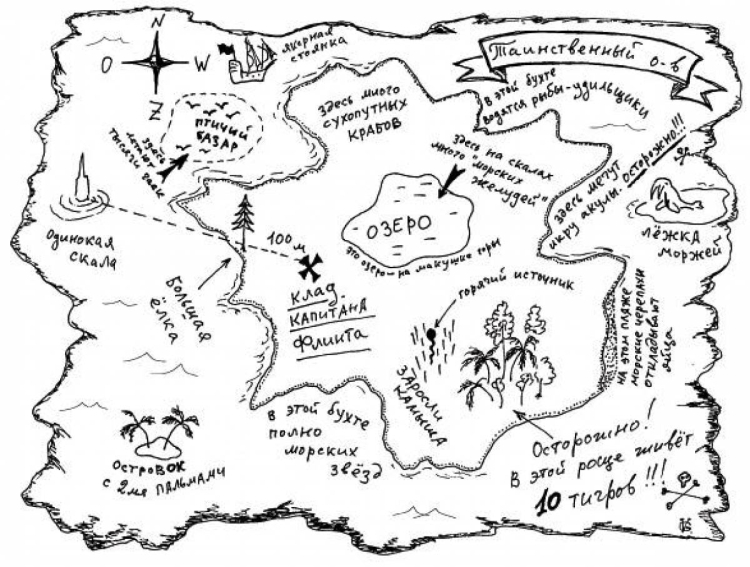 N
O
W
Z
якорная
стоянка
Таинственный о-в
В этой бухте
водятся рыбы-удильщики
Здесь много
сухопутных
крабов
Птичий
базар
Здесь
летают
тысячи
Здесь на скалах
много "морских
желудей"
Здесь мечут
икру акулы. Осторожно!!!
Лёжка
моржей
Одинокая
скала
100м
Озеро
Это озеро на макушке горы
Большая
ёлка
Клад
капитана
Флинта
горячий источник
Заросли
камыша
На этом пляже
морские черепахи
откладывают
яйца
В этой бухте
полно
морских
звёзд
Островок
с 2мя пальмами
Осторожно!
В этой роще живёт
10 тигров!!!